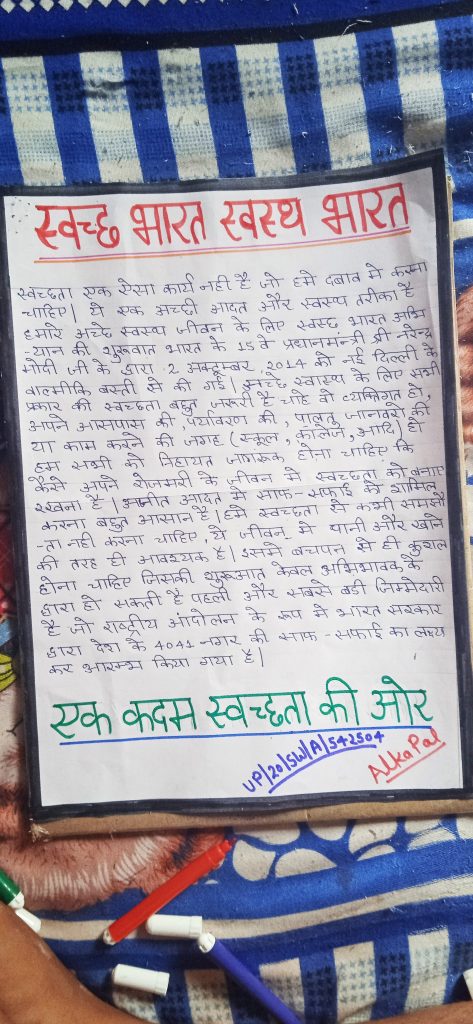 स्वच्छ भारत स्वस्थ भारत
स्वच्छता एक ऐसा कार्य नही है जो हमे दबाव मे करना
चाहिए| ये एक अच्छी आदत और स्वस्थ तरीका है
हमारे अच्छे स्वस्थ जीवन के लिए स्वच्छ भारत अभि
-यान की शुरूवात भारत के 15 वे प्रधानमन्त्री श्री नरेन्द्र
मोदी जी के द्वारा 2 अक्टूम्बर 2014 को नई दिल्ली के
वाल्मीकि बस्ती से की गई| अच्छे स्वास्थ के लिए सभी
प्रकार की स्वच्छता बहुत जरूरी है चाहे वो व्यक्तिगत हो,
अपने आसपास की, पर्यावरण की, पालतु जानवरो की
या काम करने की जगह (स्कूल, कॉलेज, आदि) हो
हम सभी को निहायत जागरूक होना चाहिए कि
कैसे अपने रोजमर्रा के जीवन मे स्वच्छता को बनाए
रखना है| अपनी आदत मे साफ-सफाई को शामिल
करना बहुत आसान है| हमे स्वच्छता से कभी समझौ
-ता नही करना चाहिए, ये जीवन मे पानी और खाने
की तरह ही आवश्यक है| इसमे बचपन से ही कुशल
होना चाहिए जिसकी शुरूआत केवल अभिभावक के
द्वारा हो सकती है पहली और सबसे बडी जिम्मेदारी
है जो राष्ट्रीय आंदोलन के रूप मे भारत सरकार
द्वारा देश के 4041 नगर की साफ-सफाई का लक्ष्य
कर आरम्भ किया गया है|
एक कदम स्वच्छता की ओर
UP/20/SW/A/542504
Alka Pal